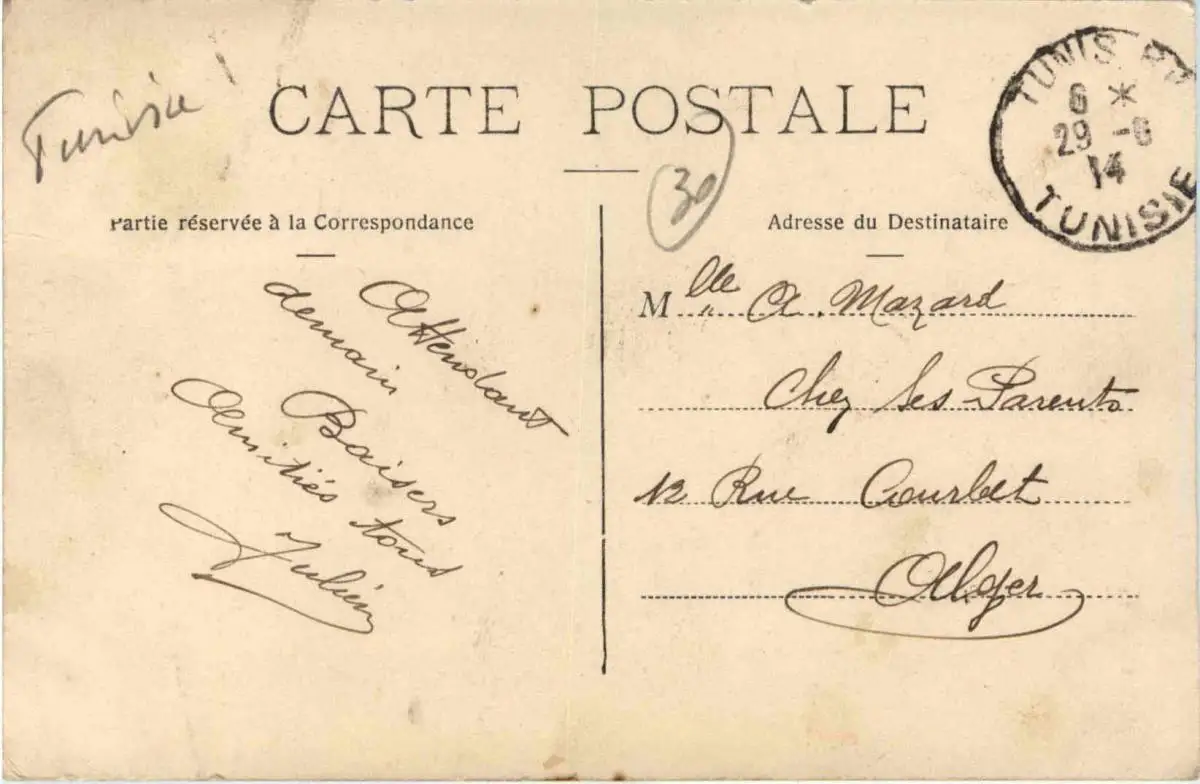 Tunisie
CARTE POSTALE
30
TUNIS RP
6 *
29 -6
14
TUNISIE
Partie réservée à la Correspondance
Adresse du Destinataire
Attendant
demain
Baisers
Amitiés tous
Julien
Mlle A. Mazard
Chez Ses Parents
12 Rue Courbet
Alger